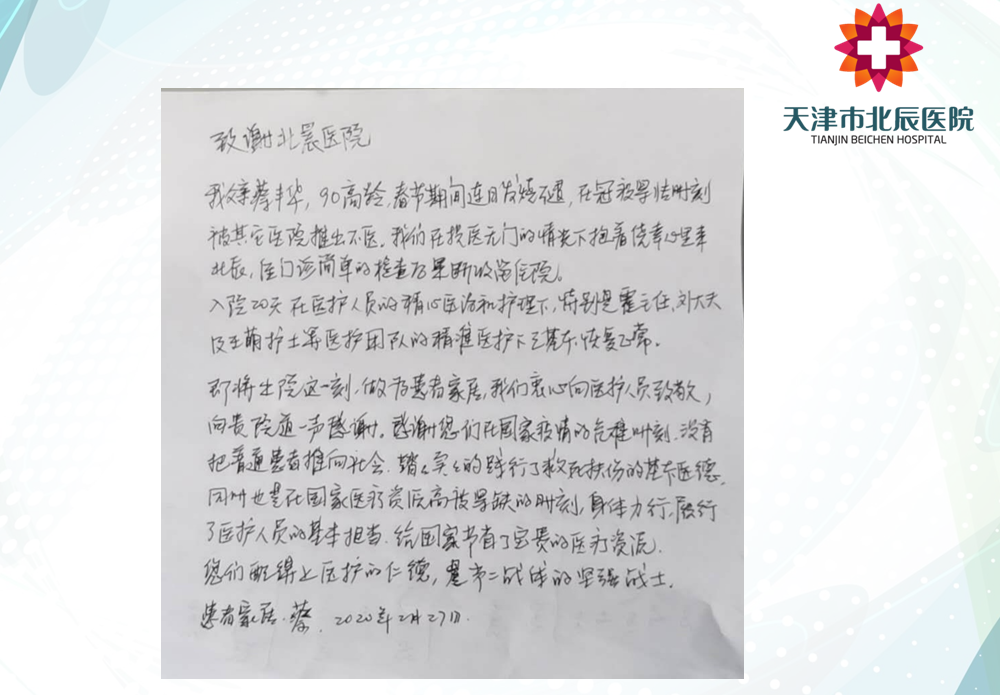 天津市北辰医院
TIANJIN BEICHEN HOSPITAL
致谢北辰医院
我父亲蔡丰华，90高龄，春节期间连日发烧不退，在冠疫暴临时刻
被其它医院推出不医。我们在投医无门的情况下抱着侥幸心里来
北辰，医门诊简单的检查后果断收留住院。
入院20天在医护人员的精心医治和护理下，特别是霍主任，刘大夫
及王萌护士等医护团队的精准医护下已基本恢复正常。
即将出院这一刻，做为患者家居，我们衷心向医护人员致敬，
向贵院道一声感谢。感谢您们在国家疫情的危难时刻，没有
把普通患者推向社会，踏踏实实的践行了救死扶伤的基本医德，
同时也是在国家医疗资源高度紧缺的时刻，身体力行，履行
了医护人员的基本担当，给国家节省了宝贵的医疗资源。
您们配得上医护的仁德，是第二战线的坚强战士。
患者家居：蔡 2020年2月27日.